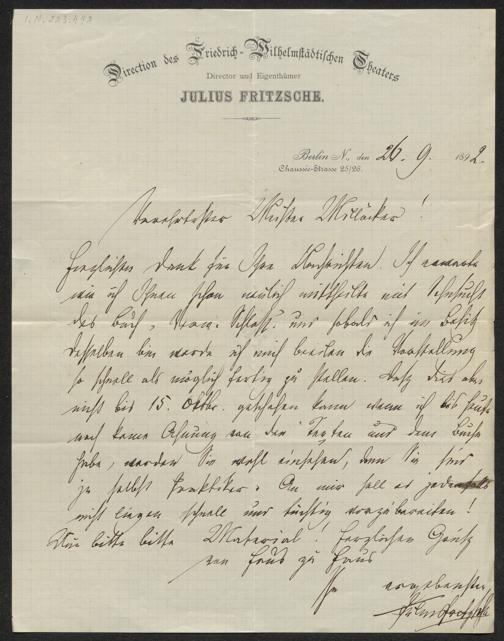 I.N. 223.492
Direction des Friedrich-Wilhelmstädtischen Theaters
Director und Eigenthümer
JULIUS FRITZSCHE.
Berlin N., den 26. 9. 1892.
Chaussée-Strasse 25/26.
Verehrtester Meister Millöcker!
Herzlichen Dank für Ihre Nachrichten. Ich erwarte
wie ich Ihnen schon neulich mittheilte mit Sehnsucht
das Buch, und sobald ich im Besitz
desselben bin werde ich mich beeilen die Vorstellung
so schnell als möglich fertig zu stellen. Daß dies aber
nicht bis 15. Oktbr. geschehen kann wenn ich bis heute
noch keine Ahnung von den Texten und dem Buche
habe, werden Sie wohl einsehen, denn Sie sind
ja selbst Praktiker. An mir soll es jedenfalls
nicht liegen schnell und tüchtig vorzubereiten!
Nun bitte bitte Material! Herzlichen Gruß
von Haus zu Haus
Ihr ergebenster